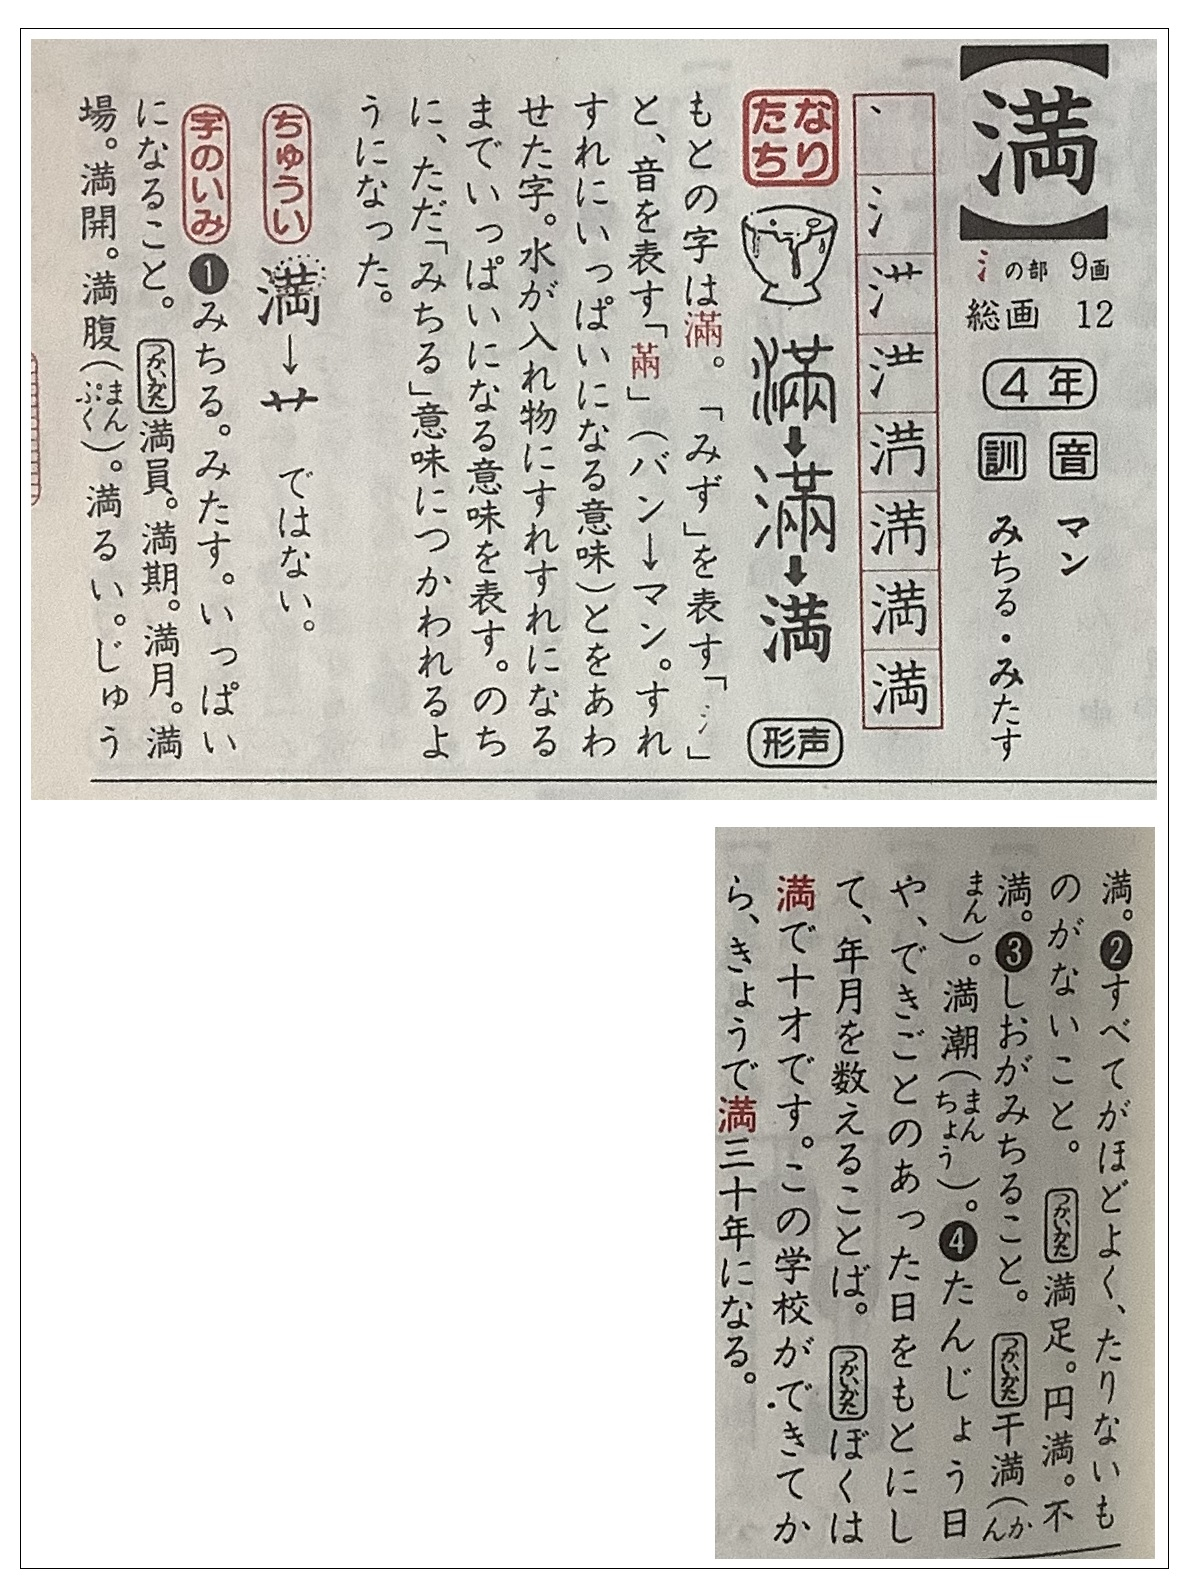 【満】
氵の部 9画
総画 12
4年
音 マン
訓 みちる・みたす
丶 氵 汁 洪 満 満 満 満
なりたち
滿→滿→満
形声
もとの字は滿。「みず」を表す「氵」
と、音を表す「㒼」(バン→マン。すれ
すれにいっぱいになる意味)とをあわ
せた字。水が入れ物にすれすれになる
までいっぱいになる意味を表す。のち
に、ただ「みちる」意味につかわれるよ
うになった。
ちゅうい 満→艹 ではない。
字のいみ ❶みちる。みたす。いっぱい
になること。つかいかた 満員。満期。満月。満
場。満開。満腹(まんぷく)。満るい。じゅう
満。❷すべてがほどよく、たりないも
のがないこと。つかいかた 満足。円満。不
満。❸しおがみちること。つかいかた 干満(かん
まん)。満潮(まんちょう)。❹たんじょう日
や、できごとのあった日をもとにし
て、年月を数えることば。つかいかた ぼくは
満で十才です。この学校ができてか
ら、きょうで満三十年になる。